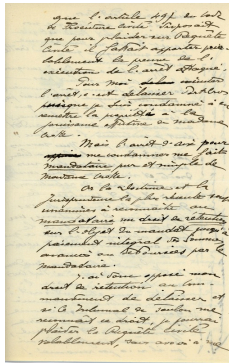 que l'article 497 du code
de Procédure Civile disposant
que pour plaider sur Requête
Civile il fallait apporter préa-
lablement la preuve de l'
exécution de l'arrêt attaqué.
Pour moi
l'arrêt, c'est délaisser
puisque je suis condamné à en
remettre la propriété à la
madame
Mais l'arrêt d'Aix pour
me condamner me
mandataire pur et simple de
Or la doctrine et la
Jurisprudence la plus haute sont
unanimes à reconnaître au
mandataire un droit de rétention
sur l'objet du mandat jusqu'à
paiement intégral des sommes
avancées ou déboursées par le
mandataire.
J'ai donc opposé mon
droit de rétention au com-
mandement de délaisser et
si le Tribunal de Toulon me
reconnait ce droit, je pourrai
plaider la Requête Civile
valablement, sans avoir à